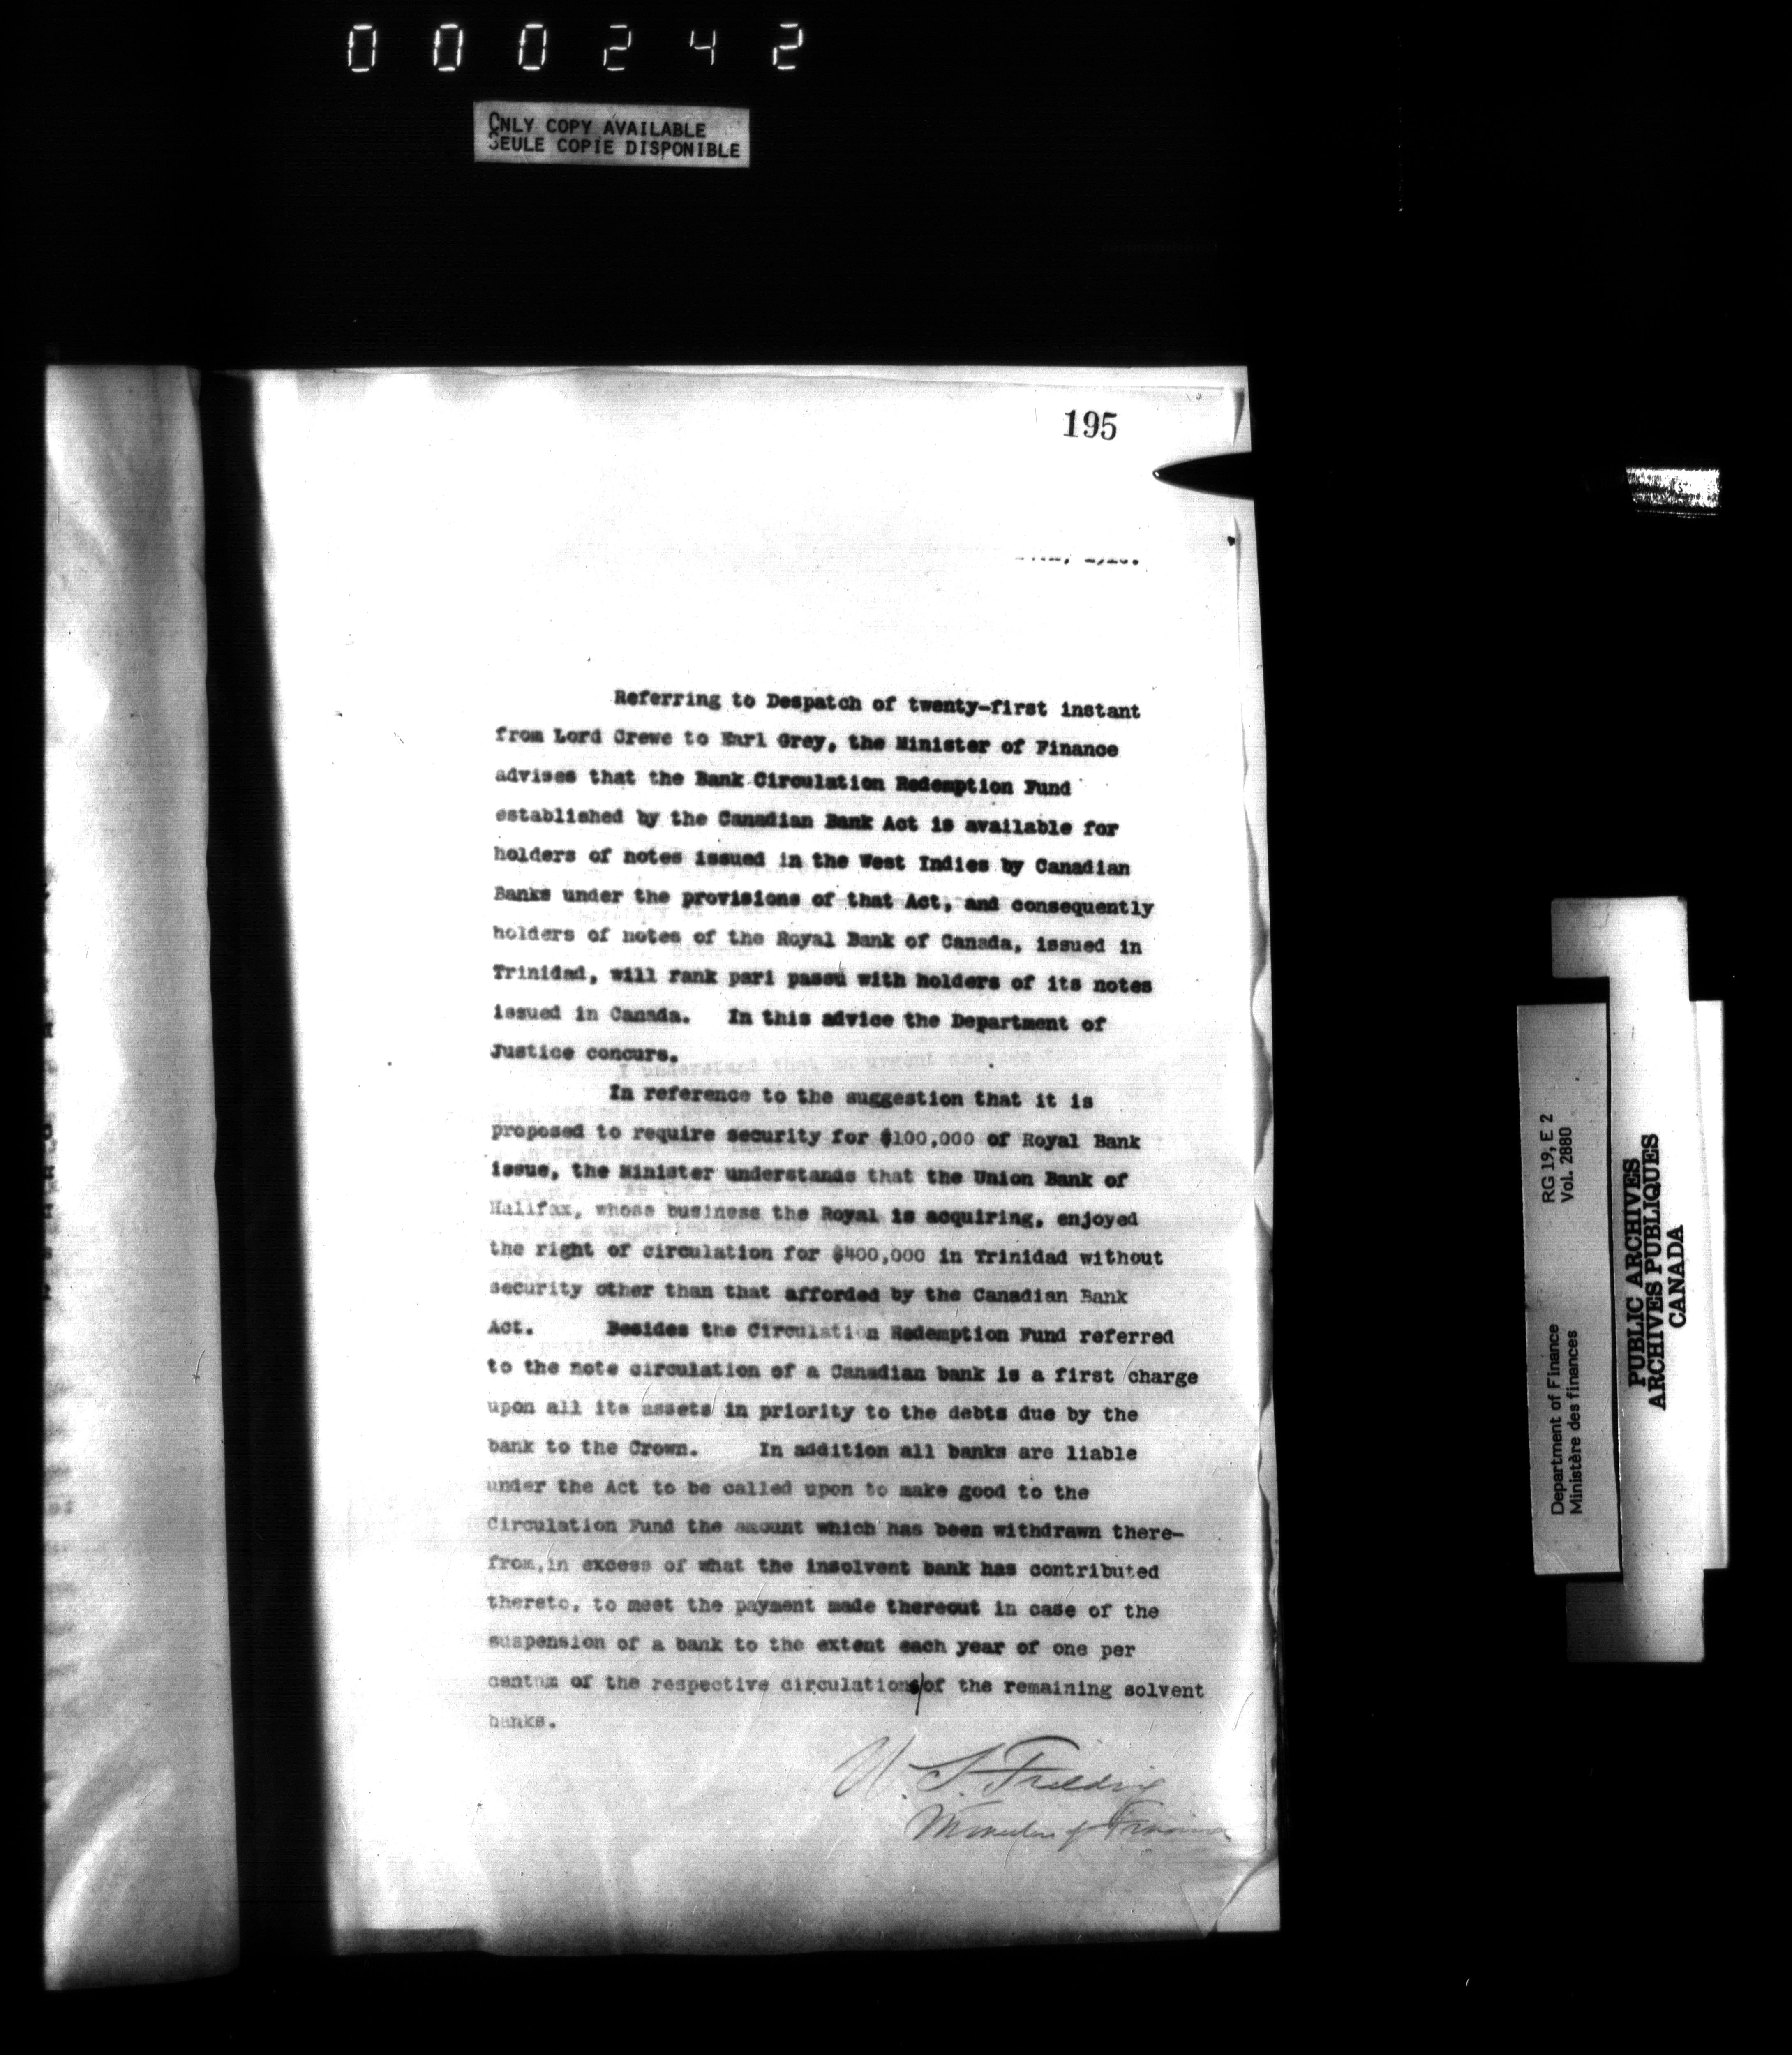 000242
ONLY COPY AVAILABLE
SEULE COPIE DISPONIBLE
195
Referring to Despatch of twenty-first instant
from Lord Crewe to Earl Grey, the Minister of Finance
advises that the Bank Circulation Redemption Fund
established by the Canadian Bank Act is available for
holders of notes issued in the West Indies by Canadian
Banks under the provisions of that Act, and consequently
holders of notes of the Royal Bank of Canada, issued in
Trinidad, will rank pari passu with holders of its notes
issued in Canada. In this advice the Department of
Justice concurs.
In reference to the suggestion that it is
proposed to require security for $100,000 of Royal Bank
issue, the Minister understands that the Union Bank of
Halifax, whose business the Royal is acquiring, enjoyed
the right of circulation for $400,000 in Trinidad without
security other than that afforded by the Canadian Bank
Act. Besides the Circulation Redemption Fund referred
to the note circulation of a Canadian bank is a first charge
upon all its assets in priority to the debts due by the
bank to the Crown. In addition all banks are liable
under the Act to be called upon to make good to the
Circulation Fund the amount which has been withdrawn there-
from, in excess of what the insolvent bank has contributed
thereto, to meet the payment made thereout in case of the
suspension of a bank to the extent each year of one per
centum of the respective circulations/of the remaining solvent
banks.
W. S. Fielding
Minister of Finance
Department of Finance RG 19, E 2
Ministère des finances Vol. 2880
PUBLIC ARCHIVES
ARCHIVES PUBLIQUES
CANADA